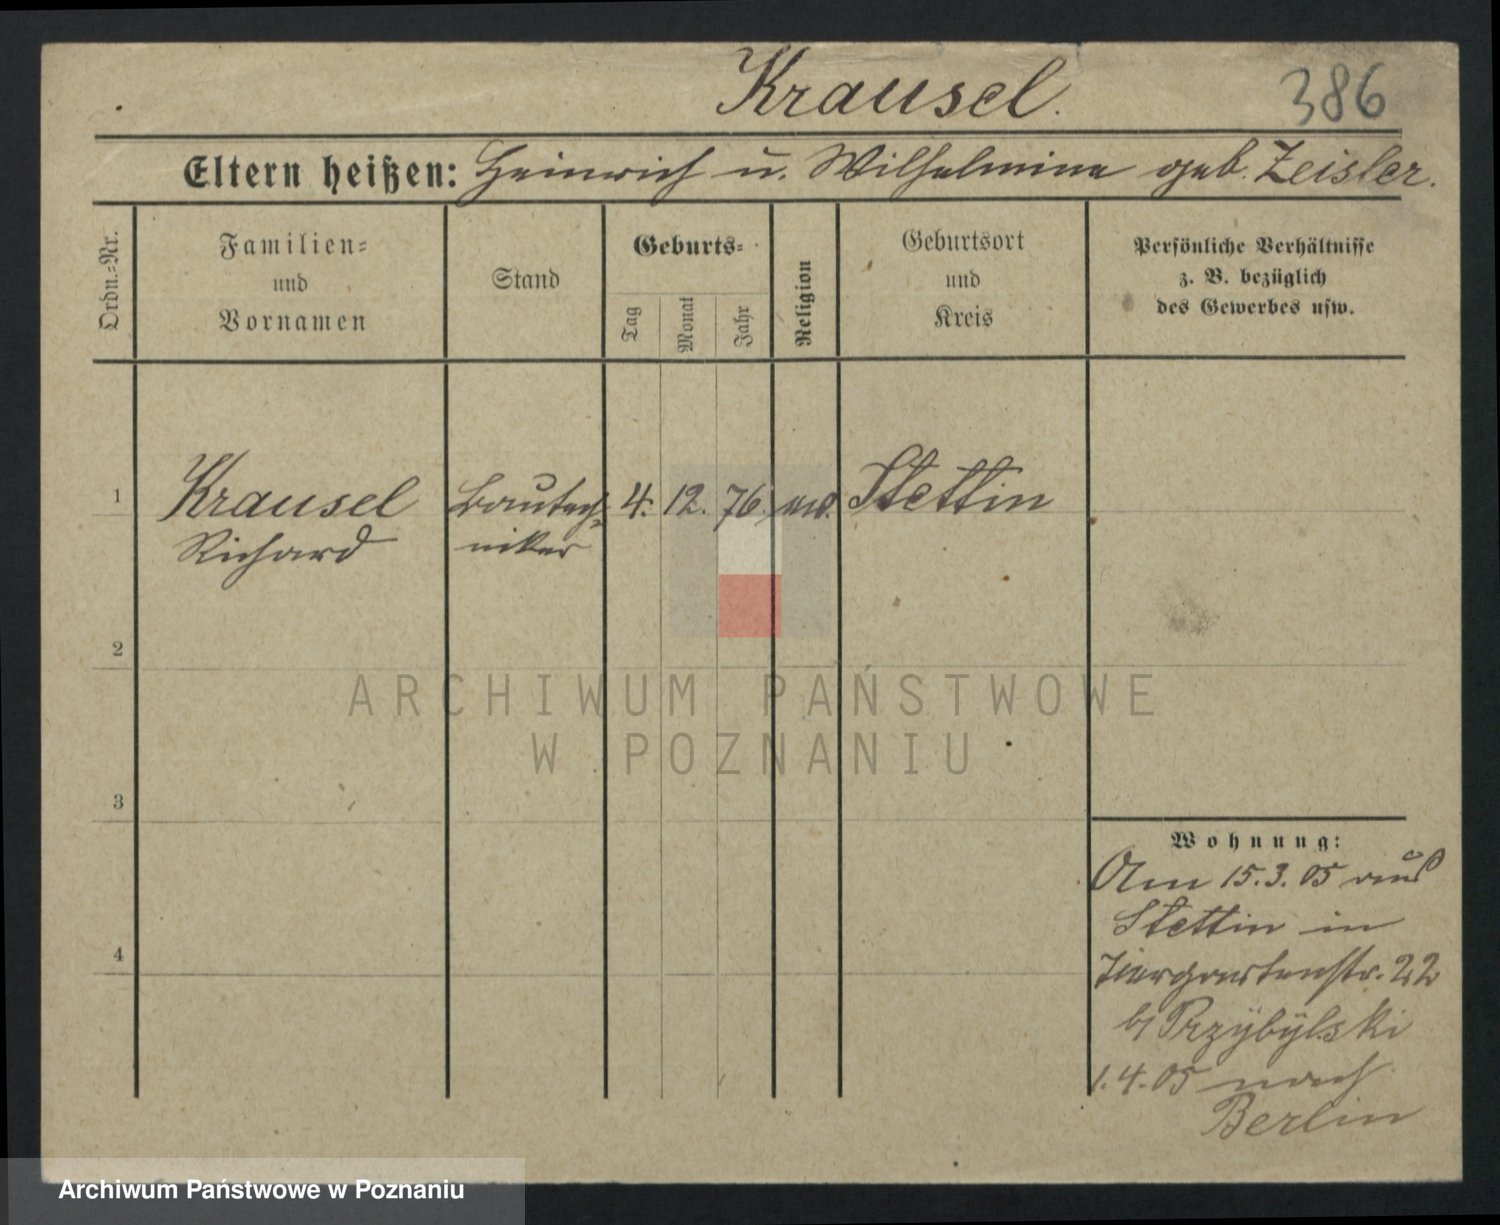 Krausel.
386
Eltern heißen: Heinrich u. Wilhelmine geb. Zeisler.
Ordn.=Nr.
Familien=
und
Vornamen
Stand
Geburts=
Tag
Monat
Jahr
Religion
Geburtsort
und
Kreis
Persönliche Verhältnisse
z. B. bezüglich
des Gewerbes usw.
1
Krausel
Richard
Bautech=
niker
4. 12. 76.
Stettin
2
3
4
Wohnung:
Am 15.3.05 aus
Stettin in
Tiergartenstr. 22
b/ Przybylski
1.4.05 nach
Berlin
ARCHIWUM PAŃSTWOWE
W POZNANIU
Archiwum Państwowe w Poznaniu